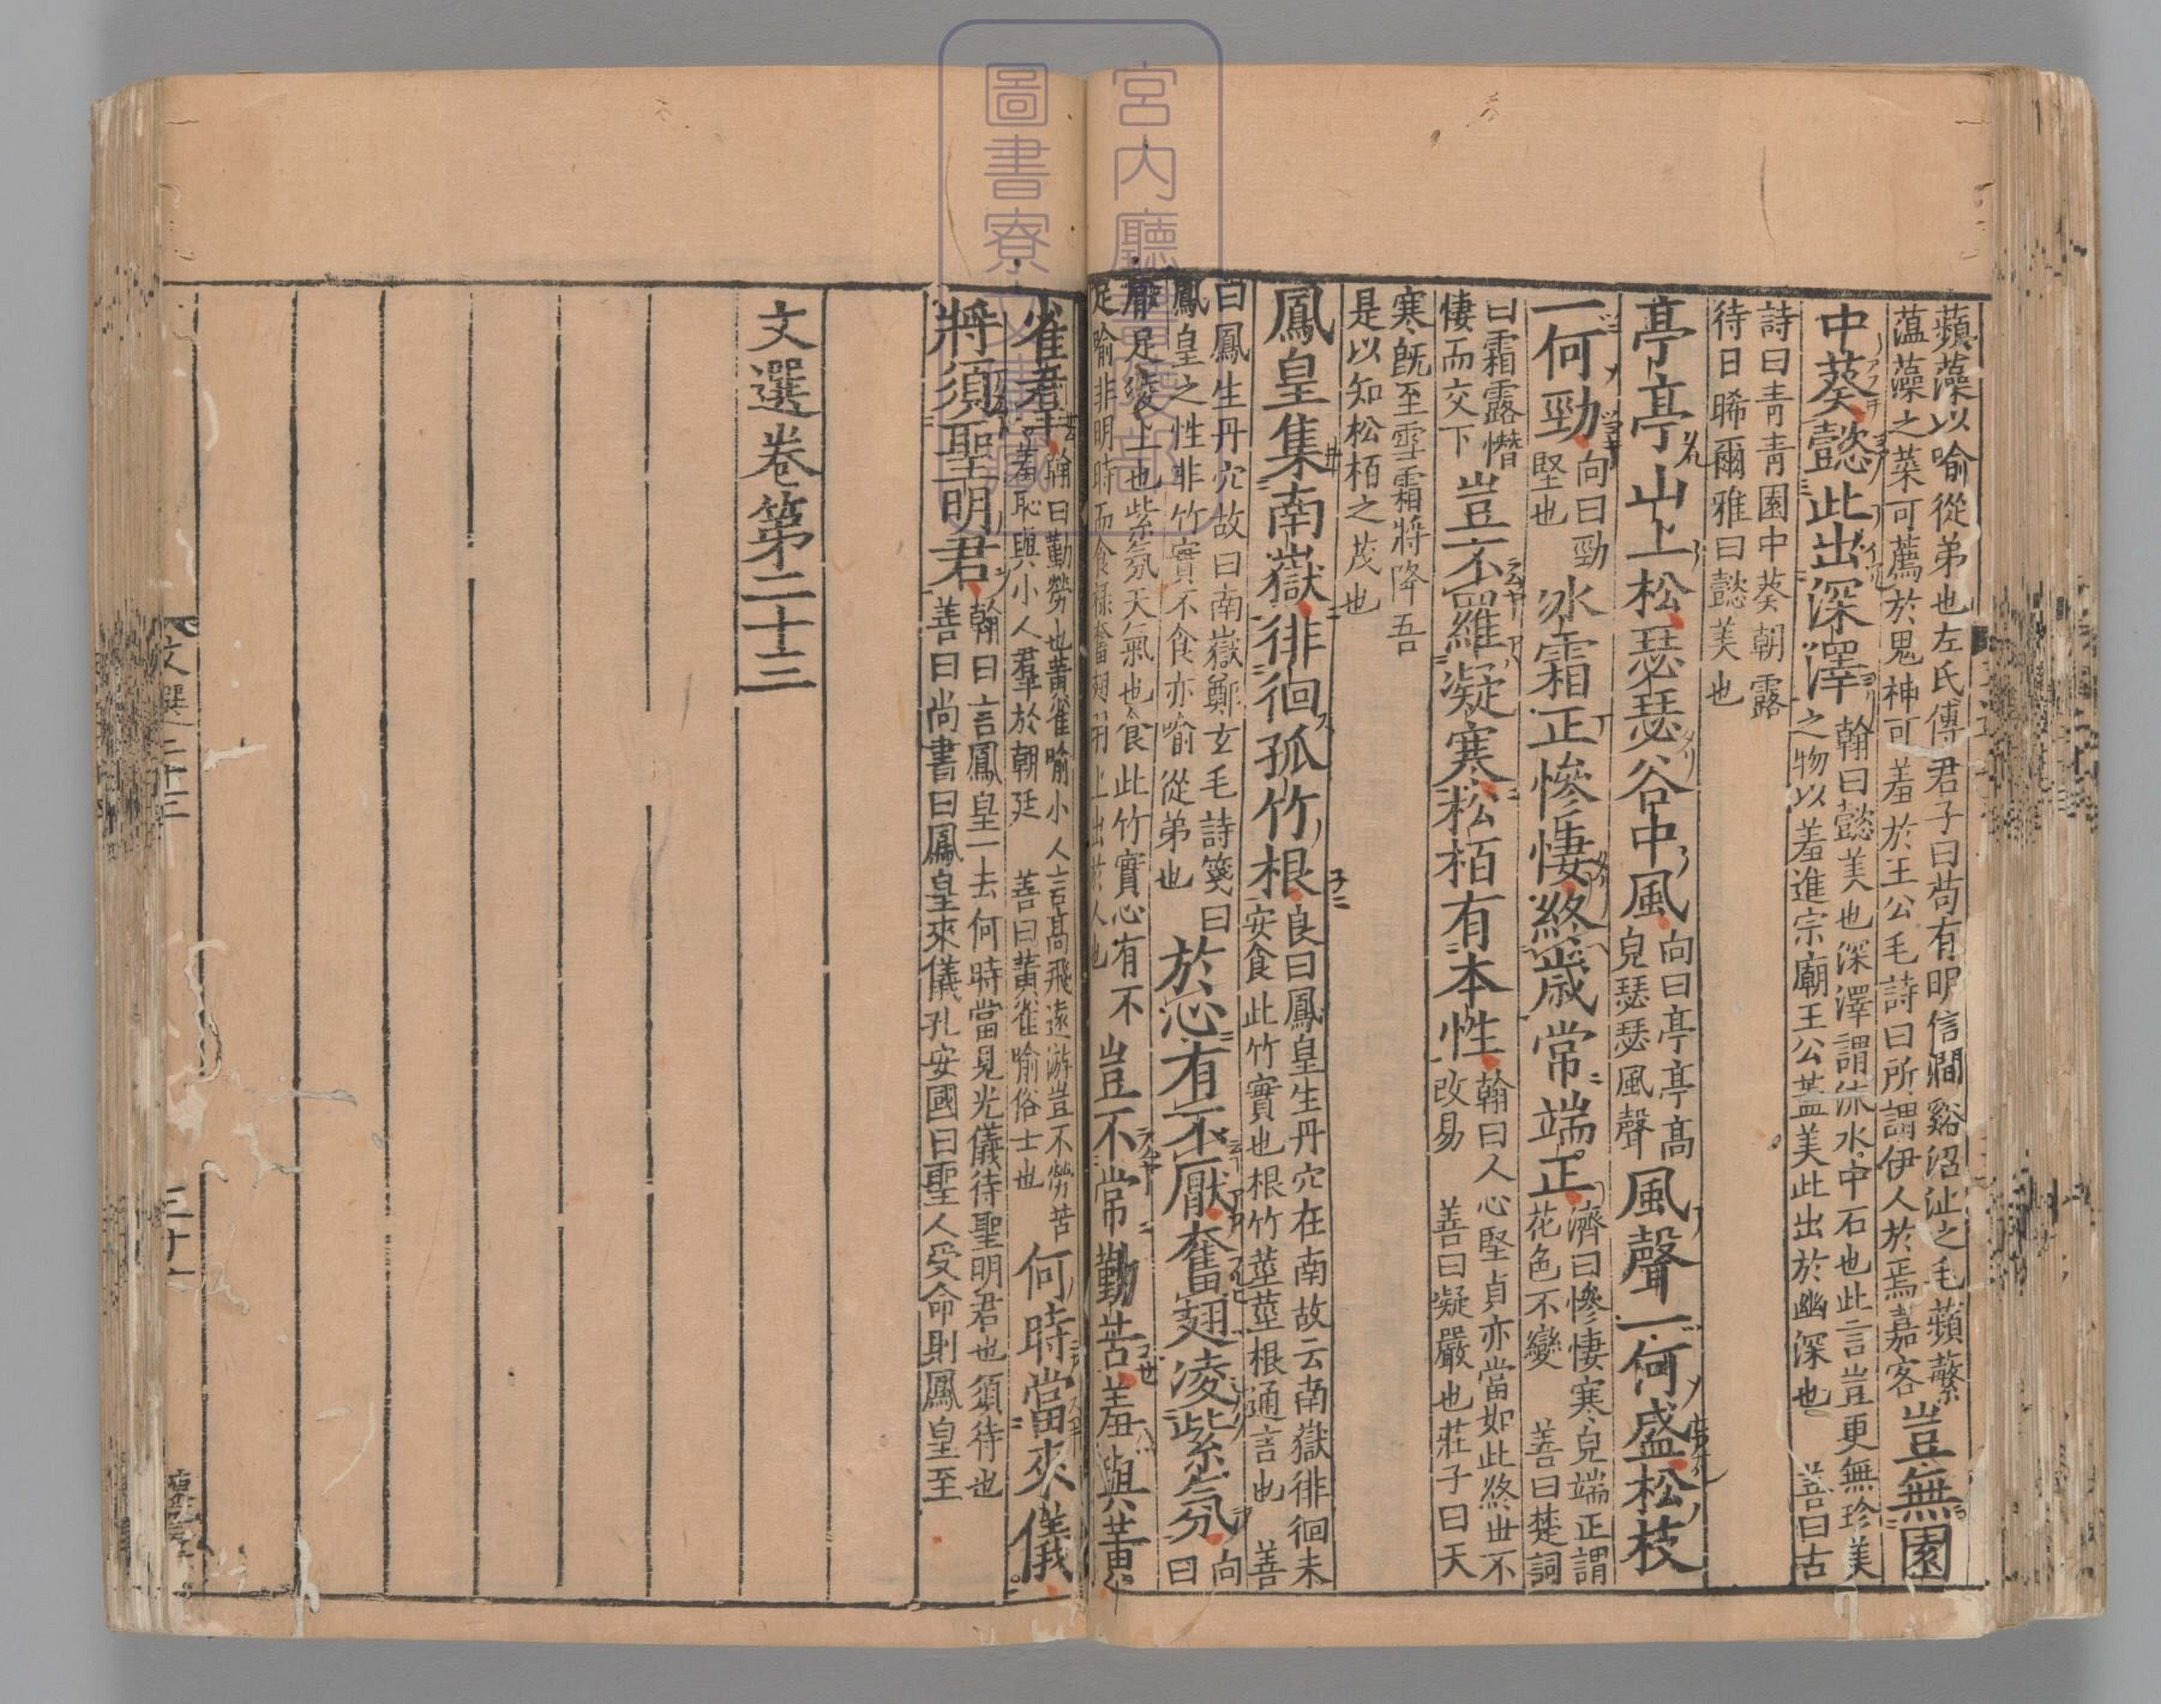 蘋藻以喻從弟也左氏傳君子曰苟有明信澗谿沼沚之毛蘋蘩
薀藻之菜可薦於鬼神可羞於王公毛詩曰所謂伊人於焉嘉客豈無園
中葵懿此出深澤翰曰懿美也深澤謂流水中石也此言豈更無珍美
之物以羞進宗廟王公葢美此出於幽深也 善曰古
詩曰青青園中葵朝露
待日晞爾雅曰懿美也
亭亭山上松瑟瑟谷中風向曰亭亭高
皃瑟瑟風聲風聲一何盛松枝
一何勁向曰勁
堅也氷霜正慘悽終歲常端正濟曰慘悽寒皃端正謂
花色不變 善曰楚詞
曰霜露慘
悽而交下豈不羅凝寒松栢有本性翰曰人心堅貞亦當如此終世不
改易 善曰凝嚴也莊子曰天
寒旣至雪霜將降吾
是以知松栢之茂也
鳳皇集南嶽徘徊孤竹根良曰鳳皇生丹穴在南故云南嶽徘徊未
安食此竹實也根竹莖莖根通言也 善
曰鳳生丹穴故曰南嶽鄭玄毛詩箋曰
鳳皇之性非竹實不食亦喻從弟也於心有不厭奮翅凌紫氛向
曰
厭足凌上也紫氛天氣也食此竹實心有不
足喻非明時而食祿奮翅羽上出於人也豈不常勤苦羞與黃
雀羣翰曰勤勞也黃雀喻小人言高飛遠游豈不勞苦
羞恥與小人羣於朝廷 善曰黃雀喻俗士也何時當來儀
將須聖明君翰曰言鳳皇一去何時當見光儀待聖明君也須待也
善曰尚書曰鳳皇來儀孔安國曰聖人受命則鳳皇至
文選卷第二十三
文選二十三
三十一
宮內廳
圖書寮